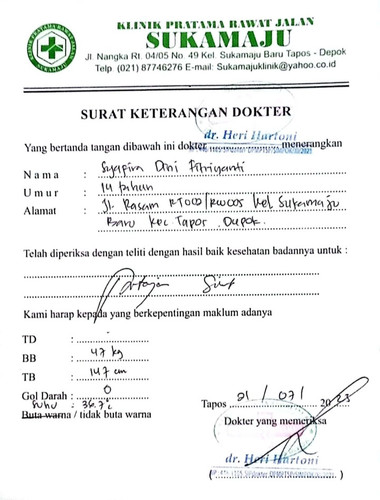 KLINIK PRATAMA RAWAT JALAN
SUKAMAJU
Jl. Nangka Rt. 04/05 No. 49 Kel. Sukamaju Baru Tapos - Depok
Telp (021) 87746276 E-mail: Sukamajuklinik@yahoo.co.id
SURAT KETERANGAN DOKTER
dr. Heri Hartoni
Yang bertanda tangan dibawah ini dokter menerangkan
Nama : Syafira Dini Fitriyanti
Umur : 14 tahun
Alamat : Jl. Rasam RT003/RW005 Kel Sukamaju
Baru Kec Tapos . Depok.
Telah diperiksa dengan teliti dengan hasil baik kesehatan badannya untuk :
Kami harap kepada yang berkepentingan maklum adanya
TD : -
BB : 47 kg
TB : 147 cm
Gol Darah : O
Suhu : 36.7°c
Buta warna / tidak buta warna
Tapos 21 / 07 / 2023
Dokter yang memeriksa
dr. Heri Hartoni